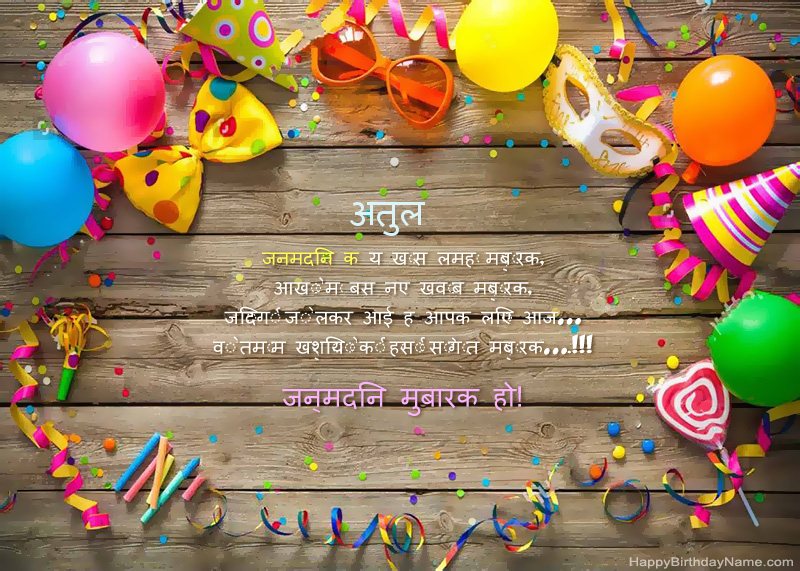 अतुल
जनमदिन क य खास लमहा मुबारक,
आखों में बस नए खवाब मुबारक,
जिंदगी जो लेकर आई ह आपक लिए आज...
वो तमाम खुशियों की हंसी सौगात मुबारक...!!!
जन्मदिन मुबारक हो!
HappyBirthdayName.com